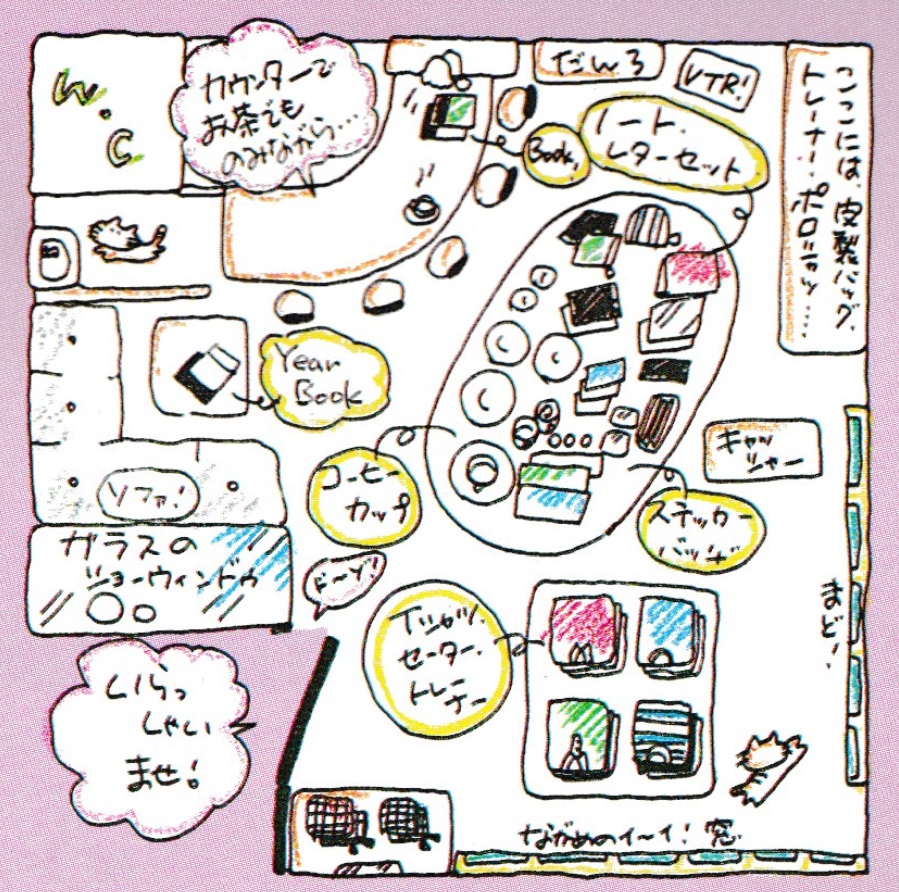 W.C
カウンターで
お茶でも
のみながら…
だんろ
VTR!
ここには、皮製バッグ、
トレーナー、ポロシャツ……
Book.
ノート・
レターセット
Year
Book
コーヒー
カップ
キャッ
シャー
ソファ!
ステッカー
バッヂ
ガラスの
ショーウィンドゥ
ドーゾ!
Tシャツ、
セーター、
トレー
ナー
まど!
いらっ
しゃい
ませ!
ながめのイ〜イ!窓